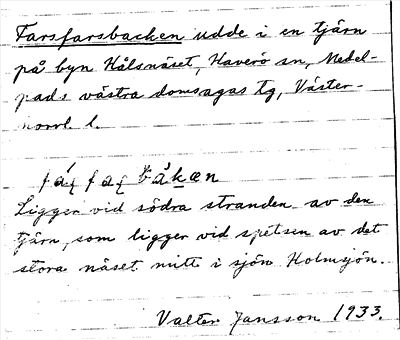 Farsfarsbacken udde i en tjärn
på byn Hålsnäset, Haverö sn, Medel-
pads västra domsagas tg, Väster-
norrl. l.
Ligger vid södra stranden av den
tjärn, som ligger vid spetsen av det
stora näset mitt i sjön Holmsjön.
Valter Jansson 1933.